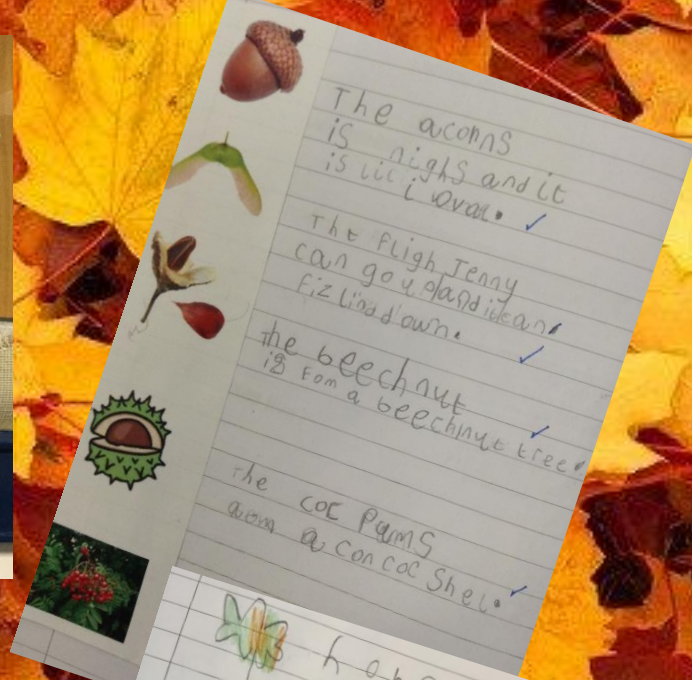 The aconns
is nighs and it
is lic i oval.
The fligh Jenny
can go up and it can
fiz lind down.
the beechnut
is fom a beechnut tree
The coc pams
aom a concoc Shel.
h